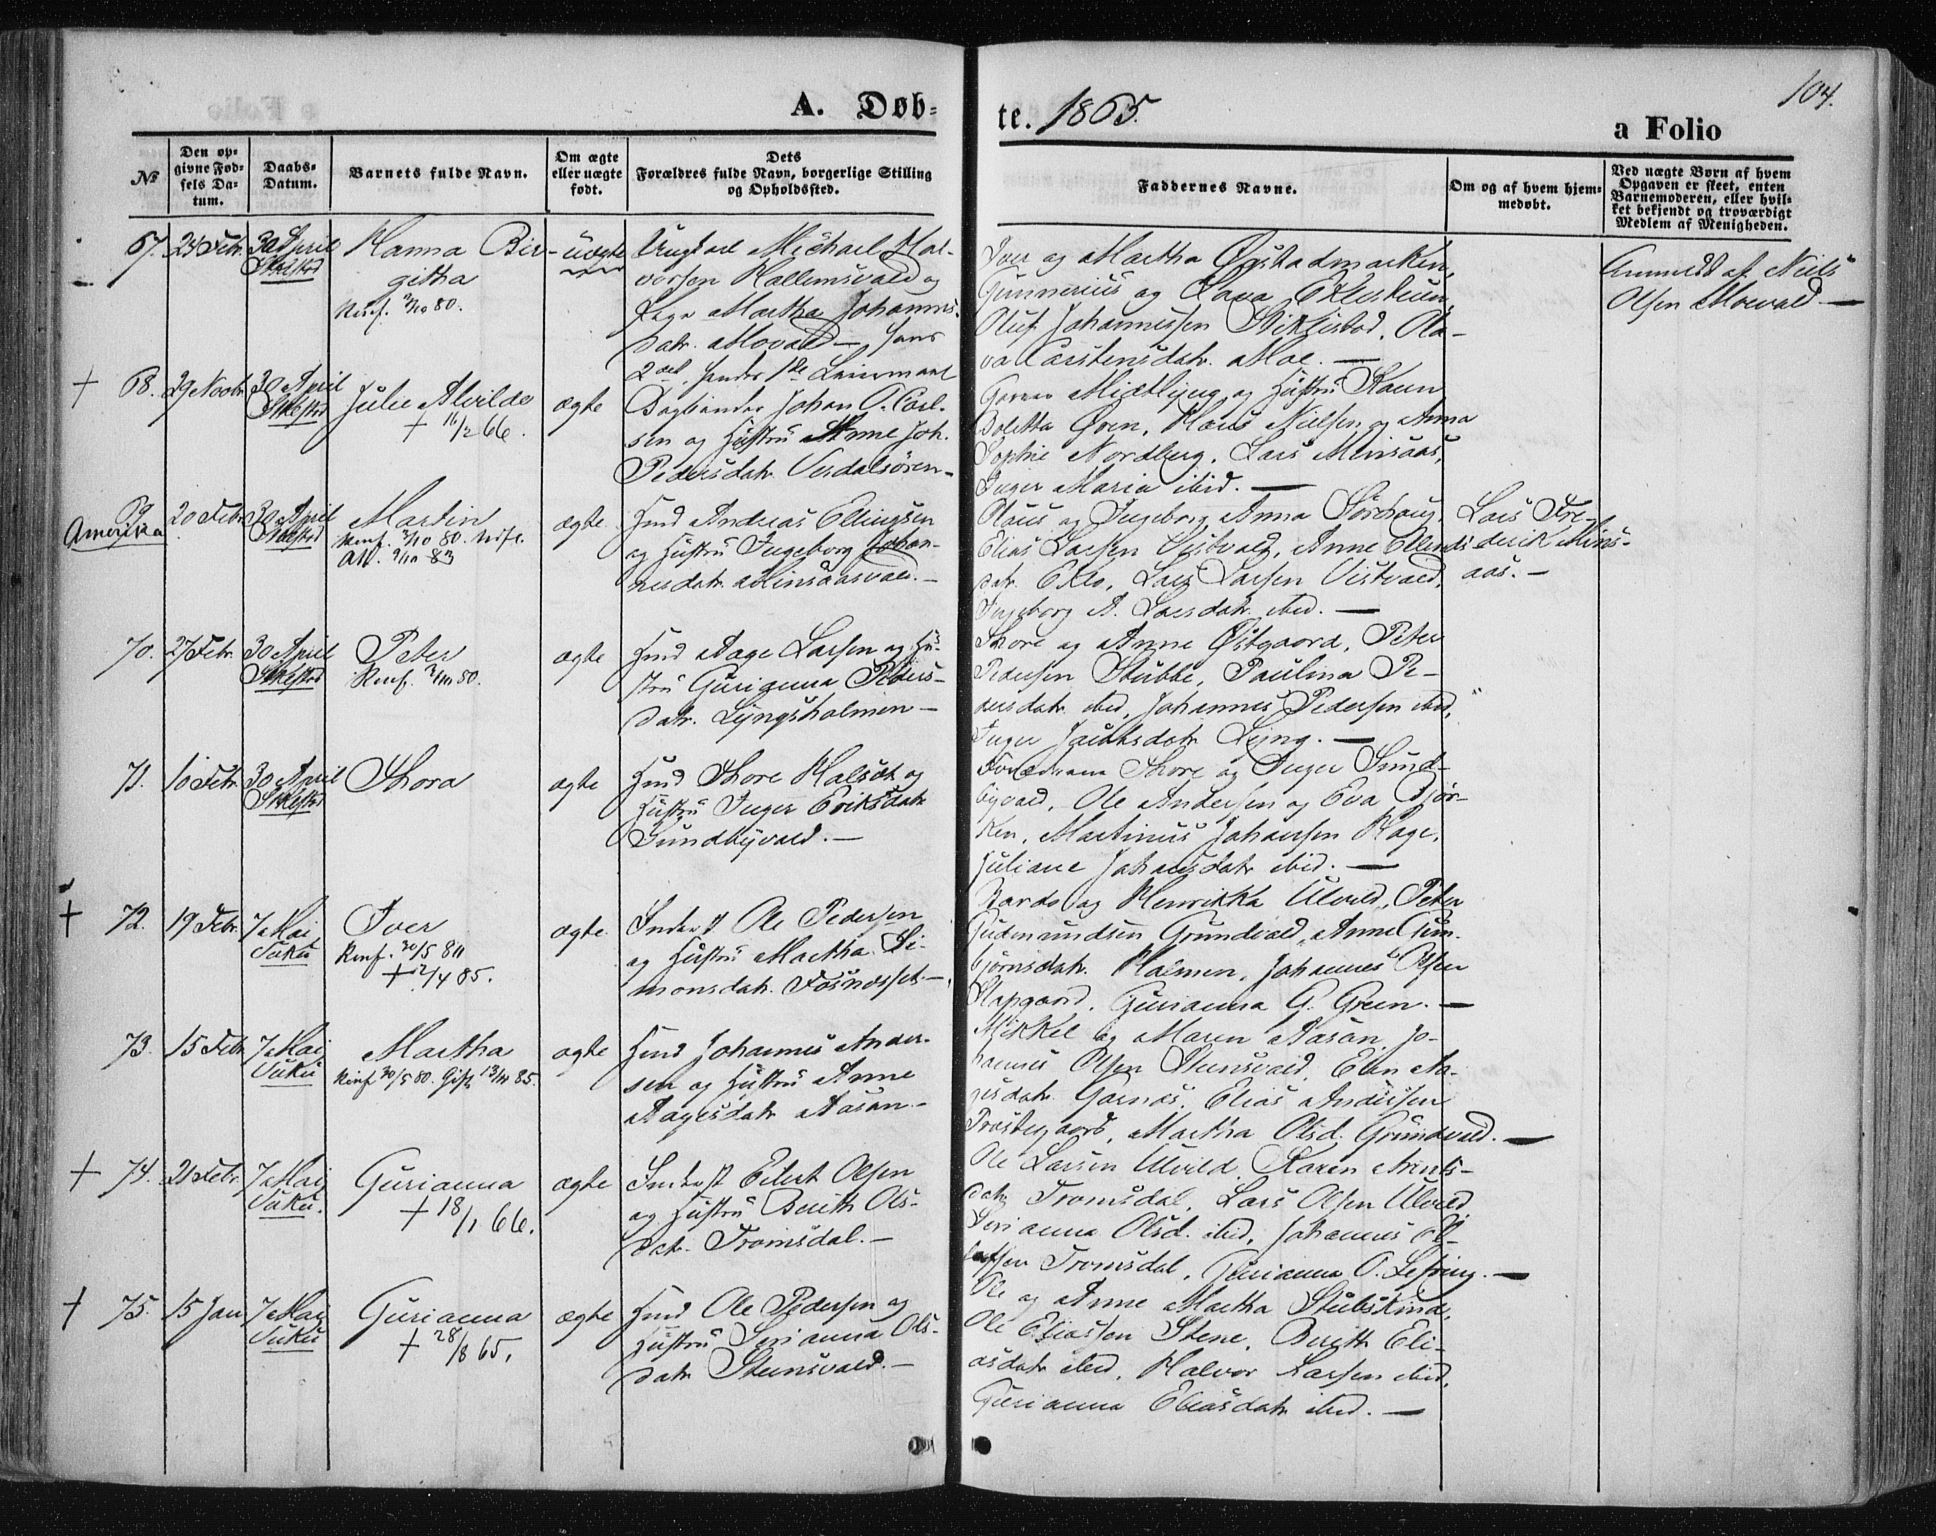 A. Døb-
te. 1865.
104.
a Folio
№
Den op-
givne Fød-
sels Da-
tum.
Daabs-
Datum.
Barnets fulde Navn.
Om ægte
eller uægte
født.
Dets
Forældres fulde Navn, borgerlige Stilling
og Opholdssted.
Faddernes Navne.
Om og af hvem hjem-
medøbt.
Ved uægte Børn af hvem
Opgaven er skeet, enten
Barnemoderen, eller hvil-
ket bekjendt og troværdigt
Medlem af Menigheden.
67. 24 Febr. 30 April
Stklstd
Hanna Bir-
githa
Konf. 3/10 80.
uægte
Ungkarl Michael Hal-
vorsen Hallemsvald og
Pige Martha Johannes-
datr. Movald — hans
2det, hendes 1ste Leiermaal
Iver og Martha Ørstadmarken,
Gunnerius og Lava Ekleskuen,
Oluf Johannessen Stiklestad, Ola-
va Carstensdatr. Moe. —
Anmeldt af Niels
Olsen Moevald —
+ 68. 29 Novbr. 30 April
Stklstd
Julie Alvilde
+ 16/2 66.
ægte
Bogbinder Johan O. Carl-
sen og Hustru Anne Joh.
Pedersdatr. Verdalsøren —
Midtlyng og Hustru Karen
Boletta Øren, Hans Nielsen og Anna
Sophie Nordberg, Lars Minsaas,
Inger Maria ibid. —
Amerika
69. 20 Febr. 30 April
Stklstd
Martin
Konf. 3/10 80. Udfl.
Att. 9/10 83
ægte
Hmd Andreas Ellingsen
og Hustru Ingeborg Johan-
nesdatr. Minsaasvald. —
Olaus og Ingeborg Anna Sørhaug,
Elias Larsen Vistvald, Anne Ellends-
datr. Eklo, Lars Larsen Vistvald,
Ingeborg A. Larsdatr. ibid. —
Lars Fre-
derik Mins-
aas. —
70. 27 Febr. 30 April
Stklstd
Peter
Konf. 3/10 80.
ægte
Hmd Aage Larsen og Hu-
stru Gurianna Peders-
datr. Lyngsholmen —
Thore og Anne Østgaard, Peter
Pedersen Stubbe, Paulina Pe-
dersdatr. ibid, Johannes Pedersen ibid,
Inger Jacobsdatr. Lyng. —
71. 10 Febr. 30 April
Stklstd
Thora
ægte
Hmd Thore Halset og
Hustru Inger Eriksdatr.
Sundbyvald. —
Forældrene Thore og Inger Sund-
byvald, Ole Andersen og Eva Bjør-
ken, Martinus Johansen Hage,
Juliane Johansdatr. ibid. —
+ 72. 19 Febr. 7 Mai
Vuku
Iver
Konf. 30/5 80
+ 12/4 85.
ægte
Inderst Ole Pedersen
og Hustru Martha Si-
monsdatr. Fosnesset —
Bardo og Henrikka Ulvild, Peter
Gudmundsen Grundvald, Anne Gun-
bjørnsdatr. Holmen, Johannes Olsen
Slapgaard, Gurianna G. Green. —
73. 15 Febr. 7 Mai
Vuku
Martha
Konf 30/5 80. Gift 13/11 85.
ægte
Hmd Johannes Ander-
sen og Hustru Anne
Aagesdatr. Aasan. —
Mikkel og Maren Aasan, Jo-
hannes Olsen Steensvald, Elen Aa-
gesdatr. Garnæs, Elias Anderssen
Præstegaard, Martha Olsd. Grundvald. —
+ 74. 21 Febr. 7 Mai
Vuku.
Gurianna
+ 18/1 66.
ægte
Inderst Eilert Olsen
og Hustru Berith Ols-
datr. Tromsdal. —
Ole Larsen Ulvild, Karen Arnts-
datr. Tromsdal, Lars Olsen Ulvild,
Serianna Olsd. ibid, Johannes
Tromsdal, Gurianna O. —
+ 75. 15 Jan 7 Mai
Vuku
Gurianna
+ 28/8 65.
ægte
Hmd Ole Pedersen og
Hustru Serianna Ols-
datr. Steensvald. —
Ole og Anne Martha Stubskind,
Ole Eliassen Stene, Berith Eli-
asdatr. ibid, Halvor Larsen ibid,
Gurianna Eliasdatr. ibid. —